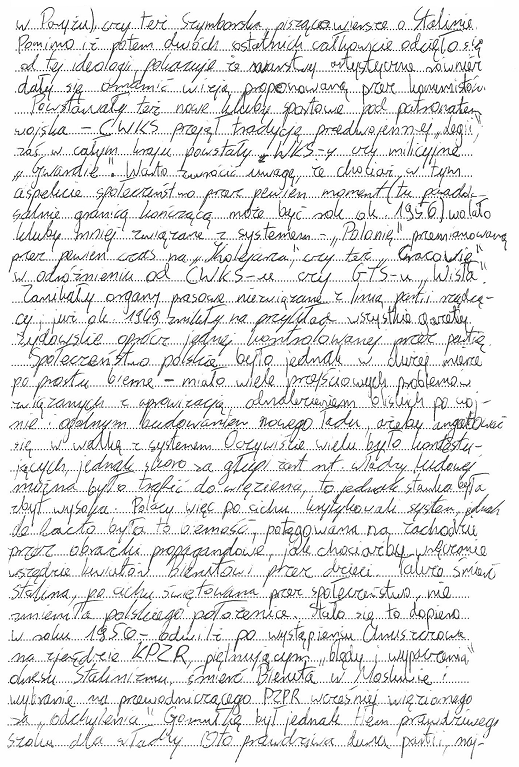 w Paryżu), czy też Szymborska pisząca wiersze o Stalinie.
Pomimo iż potem dwóch ostatnich całkowicie odcięło się
od tej ideologii pokazuje że warstwy artystyczne również
dały się omamić wizją proponowaną przez komunistów.
Powstawały też nowe kluby sportowe pod patronatem
wojska – CWKS przejął tradycję przedwojennej „Legii",
zaś w całym kraju powstały WKS-y czy milicyjne
„Gwardie". Warto zwrócić uwagę, że chociaż w tym
aspekcie społeczeństwo przez pewien moment (tu
granicą kończącą może być rok ok. 1956) wolało
kluby mniej związane z systemem – „Polonię" przemianowaną
przez pewien czas na „Kolejarza", czy też „Cracovię"
w odróżnieniu od CWKS-u czy GTS-u „Wisła".
Zanikały organy prasowe niezwiązane z linią partii rządzą-
cej, już ok. 1949 znikły na przykład wszystkie gazety
żydowskie oprócz jednej kontrolowanej przez partię.
Społeczeństwo polskie było jednak w dużej mierze
po prostu bierne – miało wiele przejściowych problemów
związanych z aprowizacją, odnalezieniem bliskich po woj-
nie i ogólnym budowaniem nowego ładu, ażeby angażować
się w walkę z systemem. Oczywiście wielu było kontestu-
jących, jednak skoro za głupi żart nt. władzy ludowej
można było trafić do więzienia, to jednak stawka była
zbyt wysoka. Polacy więc po cichu krytykowali system, jednak
de facto była to ciemność, potęgowana na zachodzie
przez obrazki propagandowe, jak chociażby wręczanie
wszędzie kwiatów Bierutowi przez dzieci. Także śmierć
Stalina, po cichu świętowana przez społeczeństwo, nie
zmieniła polskiego położenia. Stało się to dopiero
w roku 1956 – odwilż po wystąpieniu Chruszczowa
na zjeździe KPZR, piętnującym „błędy i wypaczenia"
okresu Stalinizmu, śmierć Bieruta w Moskwie i
wybranie na przewodniczącego PZPR wcześniej więzionego
za „odchylenia" Gomułkę był jednak tłem prawdziwego
szoku dla władzy. Oto prawdziwa duma partii, naj-